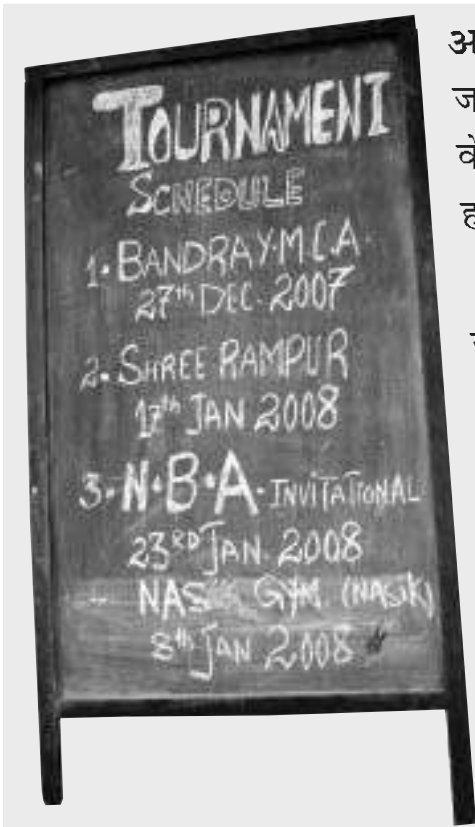 TOURNAMENT
SCHEDULE
1. BANDRA Y.M.C.A.
27th DEC. 2007
2. SHREE RAMPUR
17th JAN 2008
3. N.B.A. INVITATIONAL
23RD JAN. 2008
- NASIK GYM. (NASIK)
8th JAN 2008